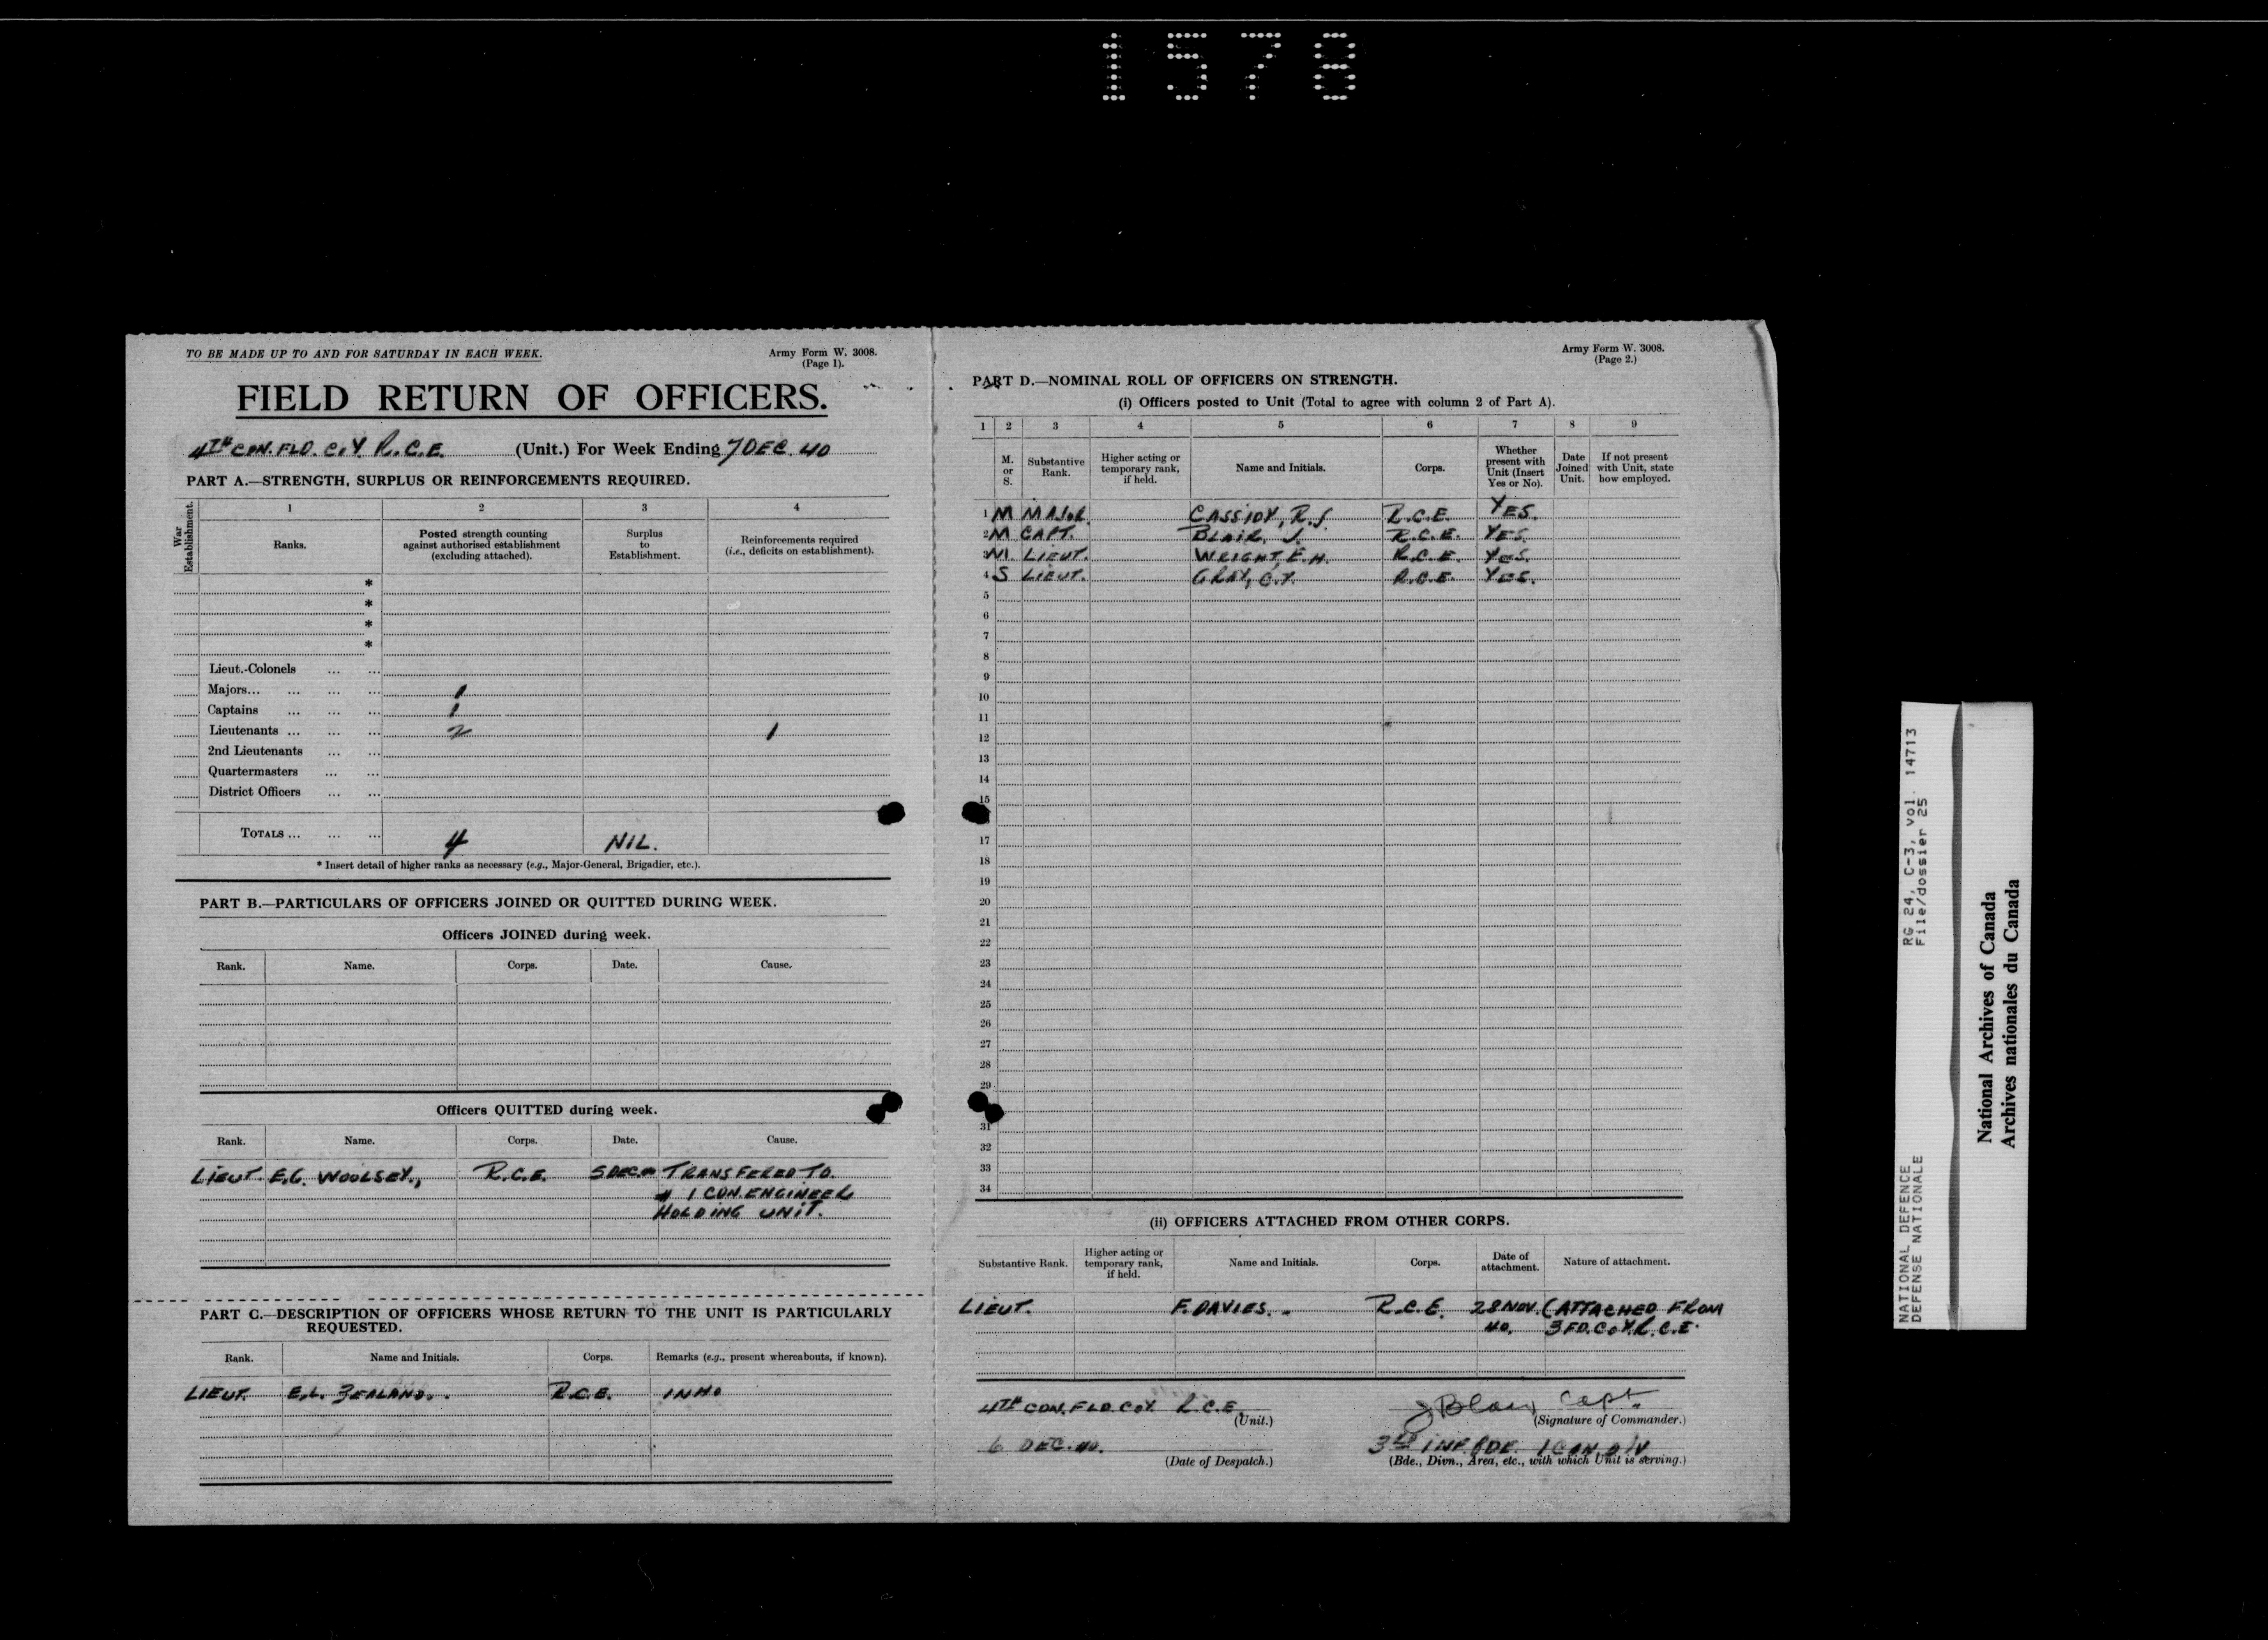 1578
TO BE MADE UP TO AND FOR SATURDAY IN EACH WEEK.
Army Form W. 3008.
(Page 1).
FIELD RETURN OF OFFICERS.
4TH CON. FLD. COY. R.C.E. (Unit.) For Week Ending 7 DEC. 40
PART A.—STRENGTH, SURPLUS OR REINFORCEMENTS REQUIRED.
War Establishment.
1 2 3 4
Ranks. Posted strength counting against authorised establishment (excluding attached). Surplus to Establishment. Reinforcements required (i.e., deficits on establishment).
*
*
*
*
Lieut.-Colonels ... ...
Majors... ... ... ... 1
Captains ... ... ... 1
Lieutenants ... ... ... 2 1
2nd Lieutenants ... ...
Quartermasters ... ...
District Officers ... ...
TOTALS ... ... ... 4 NIL.
* Insert detail of higher ranks as necessary (e.g., Major-General, Brigadier, etc.).
PART B.—PARTICULARS OF OFFICERS JOINED OR QUITTED DURING WEEK.
Officers JOINED during week.
Rank. Name. Corps. Date. Cause.
Officers QUITTED during week.
Rank. Name. Corps. Date. Cause.
LIEUT. E.G. WOOLSEY., R.C.E. 5 DEC. TRANSFERED TO
# 1 CON. ENGINEER
HOLDING UNIT.
PART C.—DESCRIPTION OF OFFICERS WHOSE RETURN TO THE UNIT IS PARTICULARLY
REQUESTED.
Rank. Name and Initials. Corps. Remarks (e.g., present whereabouts, if known).
LIEUT. E.L. ZEALAND. R.C.E.
Army Form W. 3008.
(Page 2.)
PART D.—NOMINAL ROLL OF OFFICERS ON STRENGTH.
(i) Officers posted to Unit (Total to agree with column 2 of Part A).
1 2 3 4 5 6 7 8 9
M. or S. Substantive Rank. Higher acting or temporary rank, if held. Name and Initials. Corps. Whether present with Unit (Insert Yes or No). Date Joined Unit. If not present with Unit, state how employed.
1 M MAJOR. CASSIDY, R.J. R.C.E. YES.
2 M CAPT. BLAIR, J. R.C.E. YES.
3 M LIEUT. WRIGHT, E.H. R.C.E. YES.
4 S LIEUT. GRAY, C.Y. R.C.E. YES.
5
6
7
8
9
10
11
12
13
14
15
17
18
19
20
21
22
23
24
25
26
27
28
29
31
32
33
34
(ii) OFFICERS ATTACHED FROM OTHER CORPS.
Substantive Rank. Higher acting or temporary rank, if held. Name and Initials. Corps. Date of attachment. Nature of attachment.
LIEUT. F. DAVIES. R.C.E. 28 NOV. (ATTACHED FROM
40. 3 FD. COY. R.C.E.
4TH CON. FLD. COY. R.C.E. J Blair Capt.
(Unit.) (Signature of Commander.)
6 DEC. 40. 3RD INF. BDE. 1 CAN. DIV
(Date of Despatch.) (Bde., Divn., Area, etc., with which Unit is serving.)
NATIONAL DEFENCE RG 24, C-3, vol. 14713
DEFENSE NATIONALE File/dossier 25
National Archives of Canada
Archives nationales du Canada